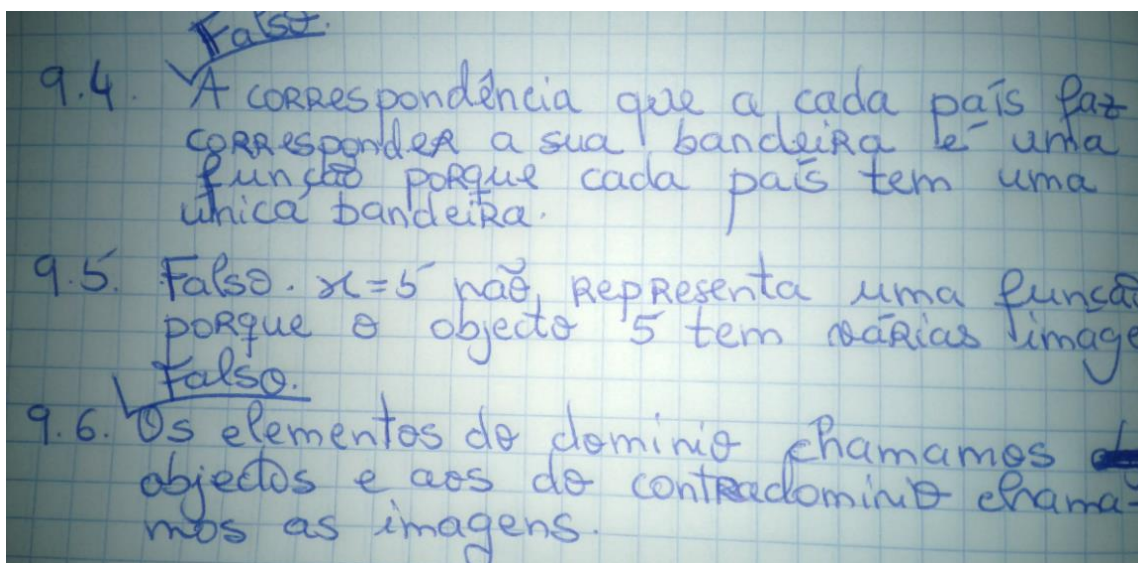 Falso.
9.4. A correspondência que a cada país faz
corresponder a sua bandeira é uma
função porque cada país tem uma
única bandeira.
9.5. Falso. x=5 não representa uma função
porque o objecto 5 tem várias image
Falso.
9.6. Os elementos do domínio chamamos
objectos e aos do contradomínio chama-
mos as imagens.